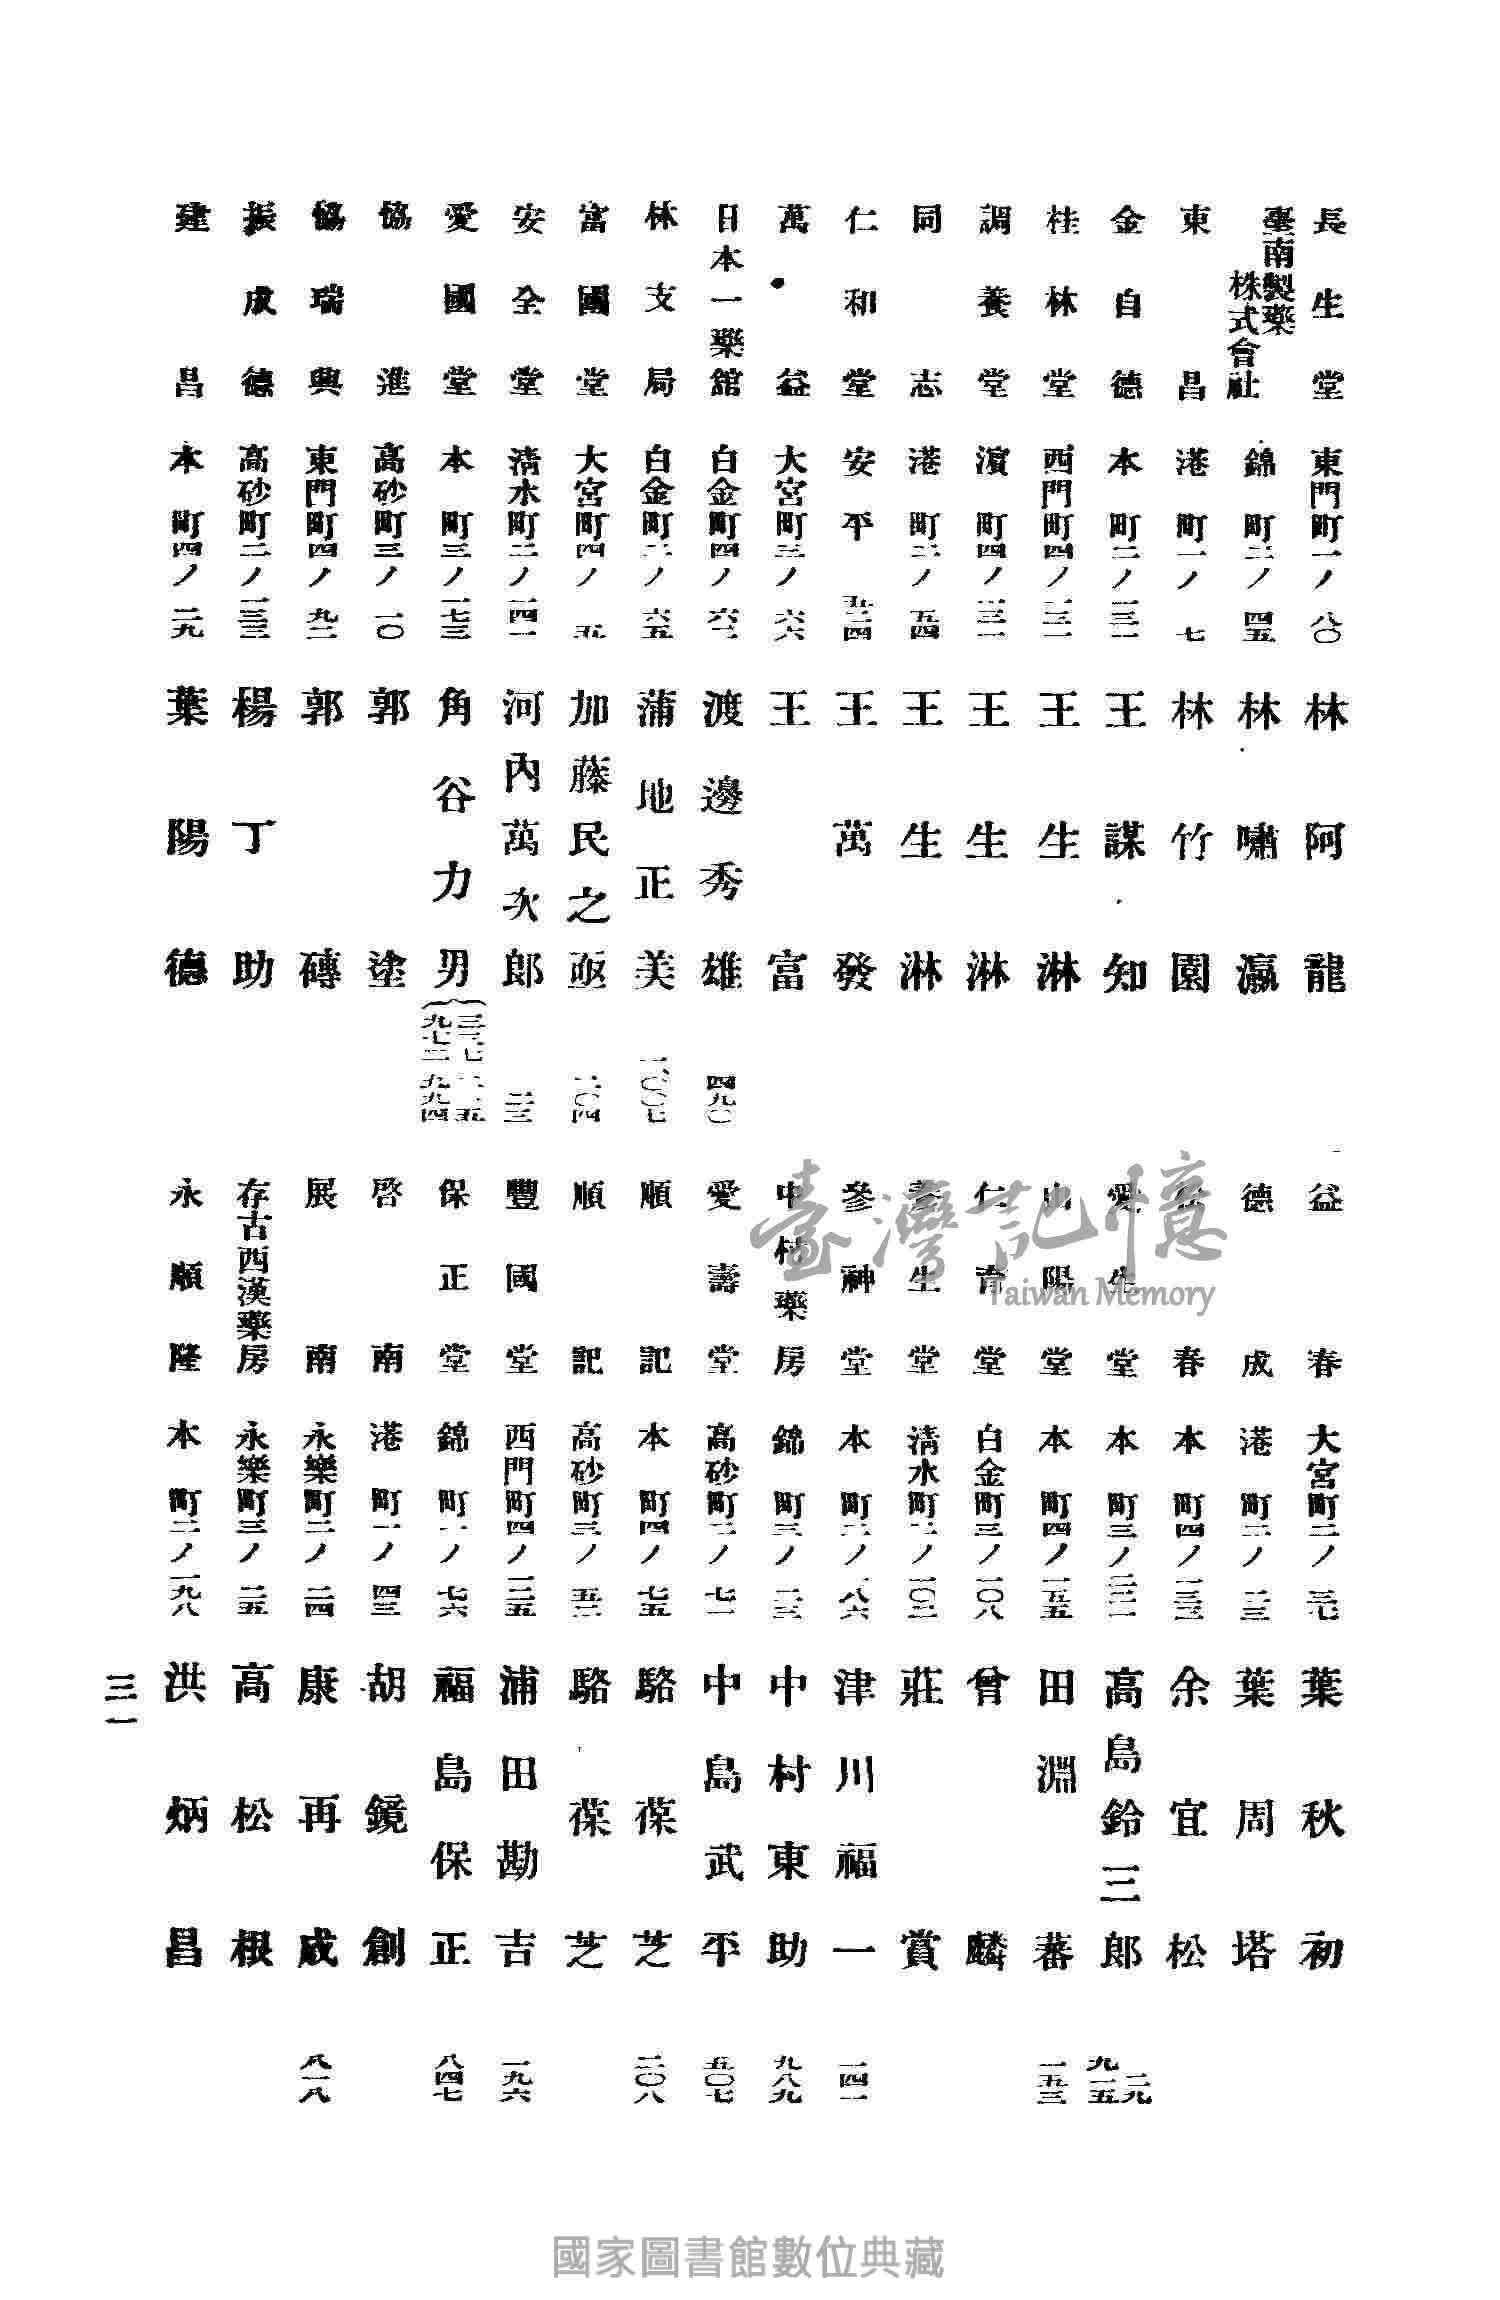 長生堂 東門町一ノ八〇 林阿龍
臺南製藥株式會社 錦町二ノ四五 林嘯瀛
東昌 港町一ノ七 林竹園
金自德 本町二ノ一三一 王謀知
桂林堂 西門町四ノ一三一 王生淋
調養堂 濱町四ノ一三一 王生淋
同志 港町二ノ五四 王生淋
仁和堂 安平 王萬發
萬益 大宮町三ノ六六 王富
日本一藥舘 白金町四ノ六二 渡邊秀雄 四九〇
林支局 白金町二ノ六五 蒲地正美 一、〇〇七
富國堂 大宮町四ノ五 加藤民之亟 二〇四
安全堂 清水町二ノ一四一 河內萬次郎 二三
愛國堂 本町三ノ一七三 角谷力男
協進 高砂町三ノ一〇 郭塗
協瑞興 東門町四ノ九二 郭磚
振成德 高砂町二ノ一三三 楊丁助
建昌 本町四ノ二九 葉陽德
益春 大宮町二ノ三七 葉秋初
德成 港町二ノ二三 葉周塔
春 本町四ノ一三三 余宜松
愛生堂 本町三ノ 高島鈴三郎 九一五 二九
山陽堂 本町四ノ一五五 田淵蕃 一五三
仁育堂 白金町三ノ一〇八 曾麟
養生堂 清水町二ノ一〇二 莊賞
參神堂 本町二ノ一八六 津川福一 一四一
中村藥房 錦町三ノ二三 中村東助 九八九
愛壽堂 高砂町二ノ七一 中島武平 五〇七
順記 本町四ノ七五 駱葆芝 二〇八
順記 高砂町三ノ五二 駱葆芝
豐國堂 西門町四ノ一二五 浦田勘吉 一九六
保正堂 錦町一ノ七六 福島保正 八四七
啓南 港町一ノ四三 胡鏡創
展南 永樂町二ノ二四 康再成 八一八
存古西漢藥房 永樂町三ノ二五 高松根
永順隆 本町二ノ一九八 洪炳昌
三一
臺灣記憶
Taiwan Memory
國家圖書館數位典藏